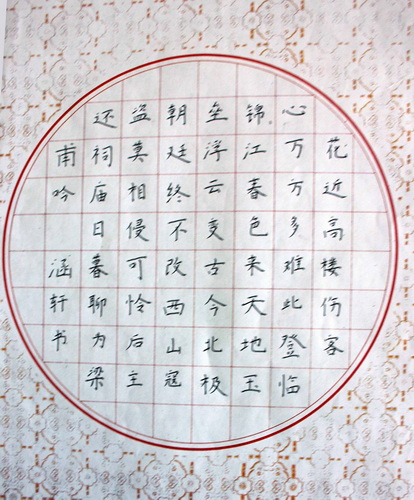 花近高楼伤客
心万方多难此登临
锦江春色来天地玉
垒浮云变古今北极
朝廷终不改西山寇
盗莫相侵可怜后主
还祠庙日暮聊为梁
甫吟 涵轩书